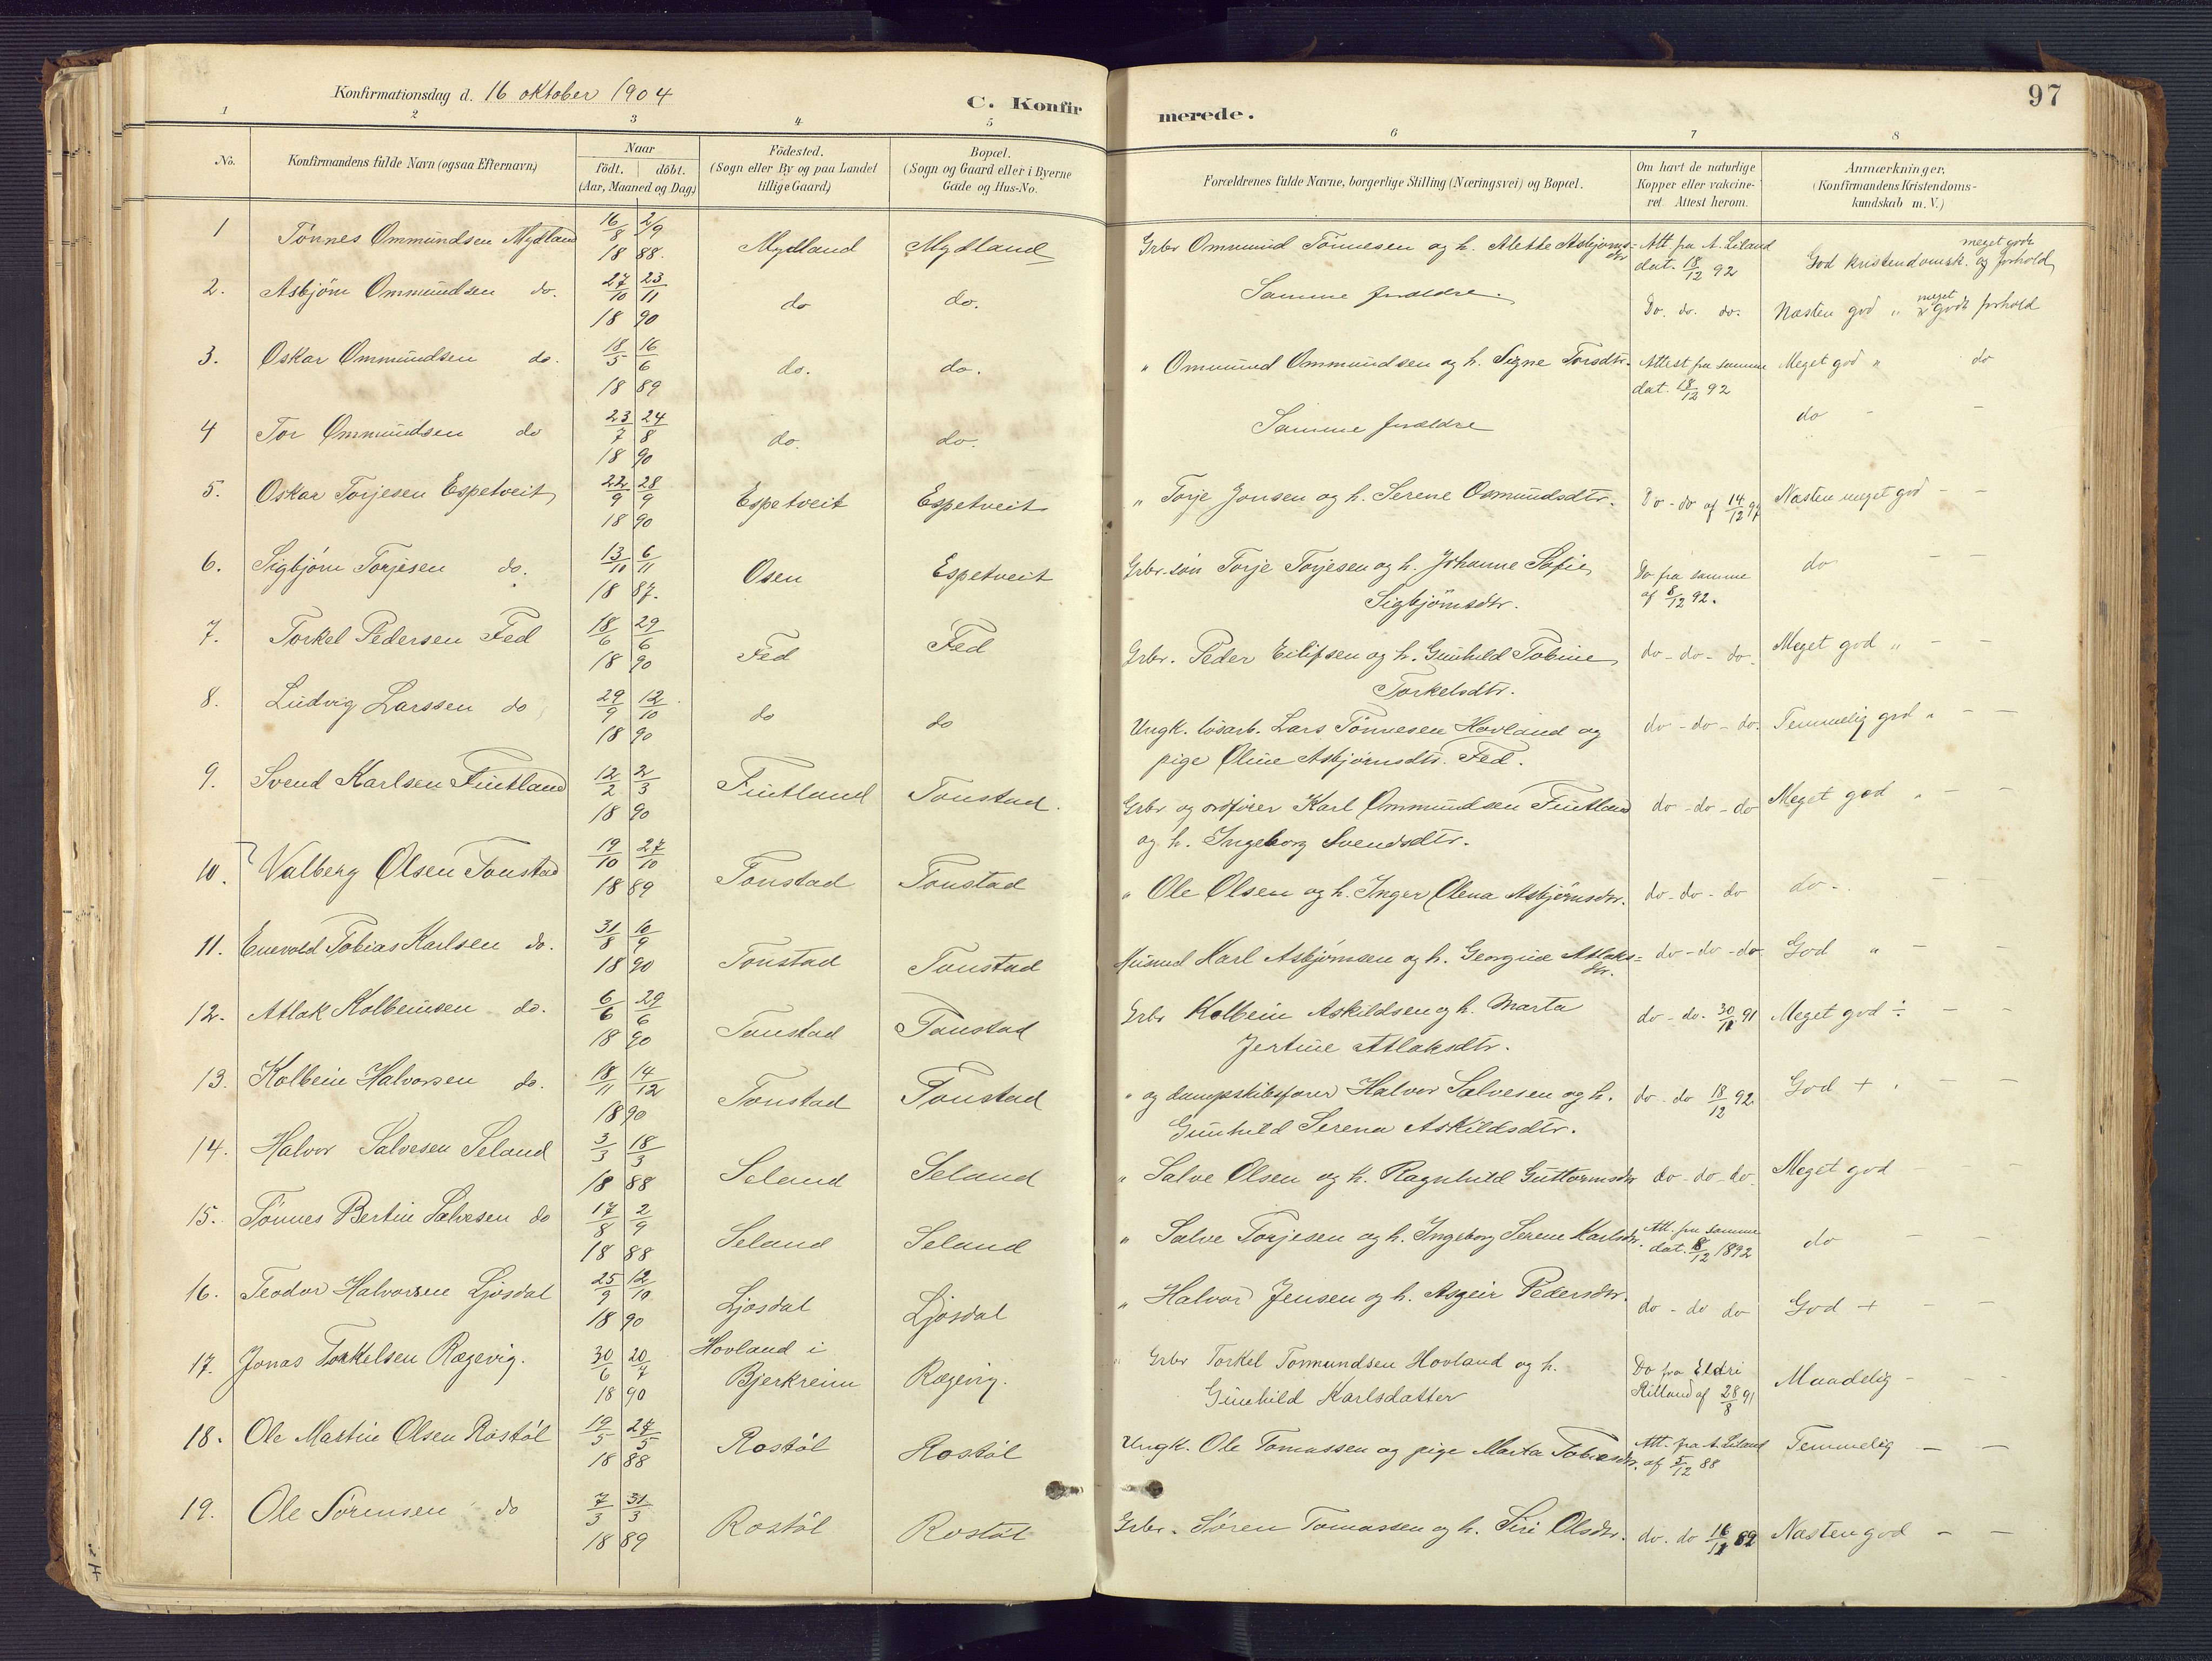 Konfirmationsdag d. 16 oktober 1904
C. Konfirmerede.
97
1 2 3 4 5 6 7 8
No.
Konfirmandens fulde Navn (ogsaa Efternavn)
Naar
födt. döbt.
(Aar, Maaned og Dag)
Födested.
(Sogn eller By og paa Landet
tillige Gaard)
Bopæl.
(Sogn og Gaard eller i Byerne
Gade og Hus-No.
Forældrenes fulde Navne, borgerlige Stilling (Næringsvei) og Bopæl.
Om havt de naturlige
Kopper eller vakcine-
ret. Attest herom.
Anmærkninger,
(Konfirmandens Kristendoms-
kundskab m. V.)
1 Tönnes Ommundsen Mydland 16/8 2/9 1888. Mydland Mydland Grbr Ommund Tönnesen og h. Alette Asbjörnsdtr Att. fra A. Liland dat. 18/12 92 God kristendomsk. og meget godt forhold
2. Asbjörn Ommundsen do. 27/10 23/11 1890 do do. Samme forældre. Do. do. do. Næsten god " meget godt forhold
3. Oskar Ommundsen do. 18/5 16/6 1889 do. do. " Ommund Ommundsen og h. Signe Torsdtr. Attest fra samme dat. 18/12 92 Meget god " do
4 Tor Ommundsen do 23/7 24/8 1890 do. do. Samme forældre do - -
5. Oskar Torjesen Espetveit 22/9 28/9 1890 Espetveit Espetveit " Torje Jonsen og h. Serene Osmundsdtr. Do - do af 14/12 97 Næsten meget god - -
6. Sigbjörn Torjesen do. 13/10 6/11 1887. Osen Espetveit Grbr.sön Torje Torjesen og h. Johanne Sofie Sigbjörnsdtr. Do fra samme af 8/12 92. do - -
7. Torkel Pedersen Fed 18/6 29/6 1890 Fed Fed Grbr. Peder Eilifsen og h. Gunhild Tobine Torkelsdtr. do - do - do. Meget god " - -
8. Ludvig Larssen do 29/9 12/10 1890 do do Ungk. lösarb. Lars Tönnesen Hovland og pige Oline Asbjörnsdtr. Fed. do - do - do. Temmelig god " - -
9. Svend Karlsen Fintland 12/2 2/3 1890 Fintland Tonstad. Grbr og ordförer Karl Ommundsen Fintland og h. Ingeborg Svendsdtr. do - do - do Meget god " - -
10. Valberg Olsen Tonstad 19/10 27/10 1889 Tonstad Tonstad " Ole Olsen og h. Inger Olena Asbjörnsdtr. do - do - do do - - -
11. Enevold Tobias Karlsen do. 31/8 10/9 1890 Tonstad Tonstad Husmd Karl Asbjörnsen og h. Georgine Atlaksdtr. do - do - do God " - -
12. Atlak Kolbeinsen do. 6/6 29/6 1890 Tonstad Tonstad Grbr Kolbein Askildsen og h. Marta Jertine Atlaksdtr. do - do. 30/12 91 Meget god ÷ - -
13. Kolbein Halvorsen do. 18/11 14/12 1890 Tonstad Tonstad " og dampskibsförer Halvor Salvesen og h. Gunhild Serena Askildsdtr. do - do 18/12 92. God + - -
14. Halvor Salvesen Seland 3/3 18/3 1888 Seland Seland " Salve Olsen og h. Ragnhild Guttormsdtr do - do - do. Meget god - -
15. Tönnes Bertin Salvesen do 17/8 2/9 1888 Seland Seland " Salve Torjesen og h. Ingeborg Serene Karlsdtr. Att. fra samme dat. 8/12 1892 do - -
16. Teodor Halvorsen Ljosdal 25/9 12/10 1890 Ljosdal Ljosdal " Halvor Jensen og h. Asgeir Pedersdtr. do - do do God + - -
17. Jonas Torkelsen Rægevig. 30/6 20/7 1890 Hovland i Bjerkreim Rægevig. " Grbr Torkel Tormundsen Hovland og h. Gunhild Karlsdatter Do fra Eldri Rilland af 28/8 91 Maadelig - -
18. Ole Martin Olsen Rostöl 19/5 27/5 1888 Rostöl Rostöl Ungk. Ole Tomassen og pige Marta Tobiasdtr. Att. fra A. Liland af 5/12 88 Temmelig - -
19. Ole Sörensen do 7/3 31/3 1889 Rostöl Rostöl Grbr. Sören Tomassen og h. Siri Olsdtr. do. do 16/12 89 Næsten god - -